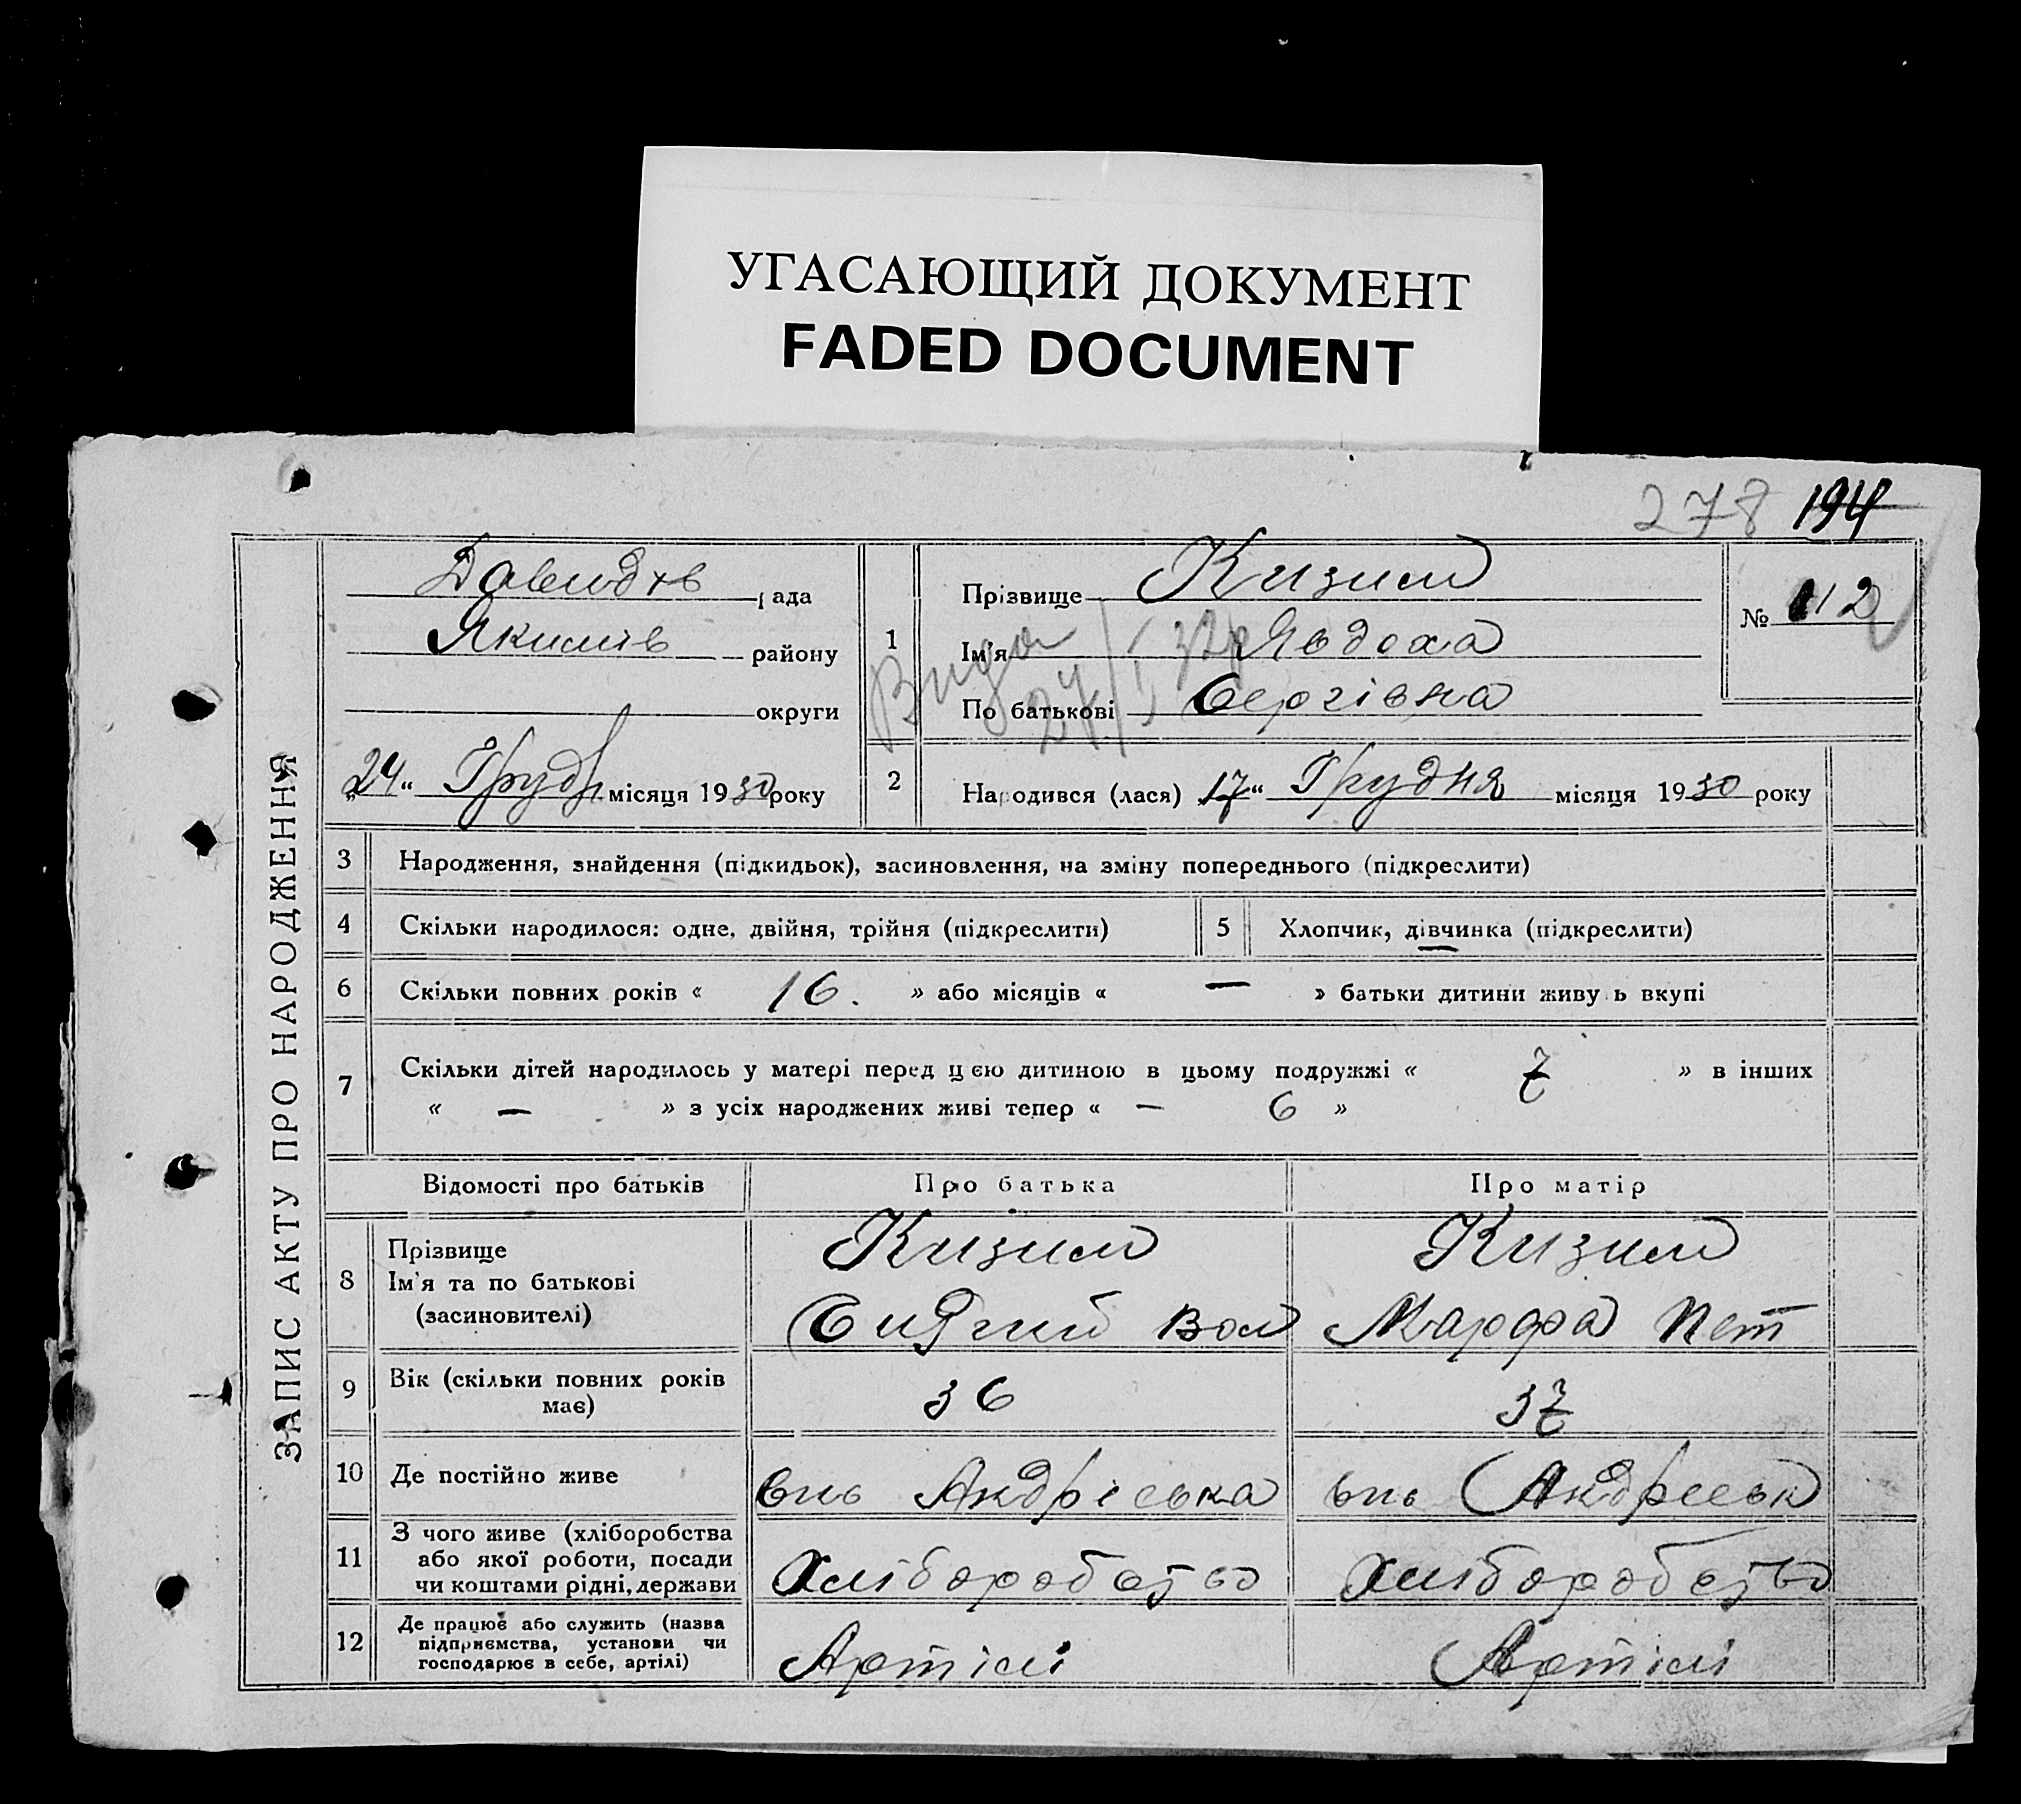 УГАСАЮЩИЙ ДОКУМЕНТ
FADED DOCUMENT
278 194
ЗАПИС АКТУ ПРО НАРОДЖЕННЯ
Давидів рада
Якимів району
округи
„24“ Грудн місяця 1930 року
1
Прізвище Кизим
Ім'я Явдоха
По батькові Сергівна
№ 112
Видан 27/I 32р
2 Народився (лася) 17“ Грудня місяця 1930 року
3 Народження, знайдення (підкидьок), засиновлення, на зміну попереднього (підкреслити)
4 Скільки народилося: одне, двійня, трійня (підкреслити) 5 Хлопчик, дівчинка (підкреслити)
6 Скільки повних років « 16. » або місяців « — » батьки дитини живу ь вкупі
7 Скільки дітей народилось у матері перед цією дитиною в цьому подружжі « 7 » в інших
« — » з усіх народжених живі тепер « — 6 »
Відомості про батьків Про батька Про матір
8 Прізвище Кизим Кизим
Ім'я та по батькові
(засиновителі) Вол Марфа Пет
9 Вік (скільки повних років має) 36 37
10 Де постійно живе Андрієвка
11 З чого живе (хліборобства
або якої роботи, посади
чи коштами рідні, держави Хліборобство Хліборобство
12 Де працює або служить (назва
підприємства, установи чи
господарює в себе, артілі) Артілі Артілі